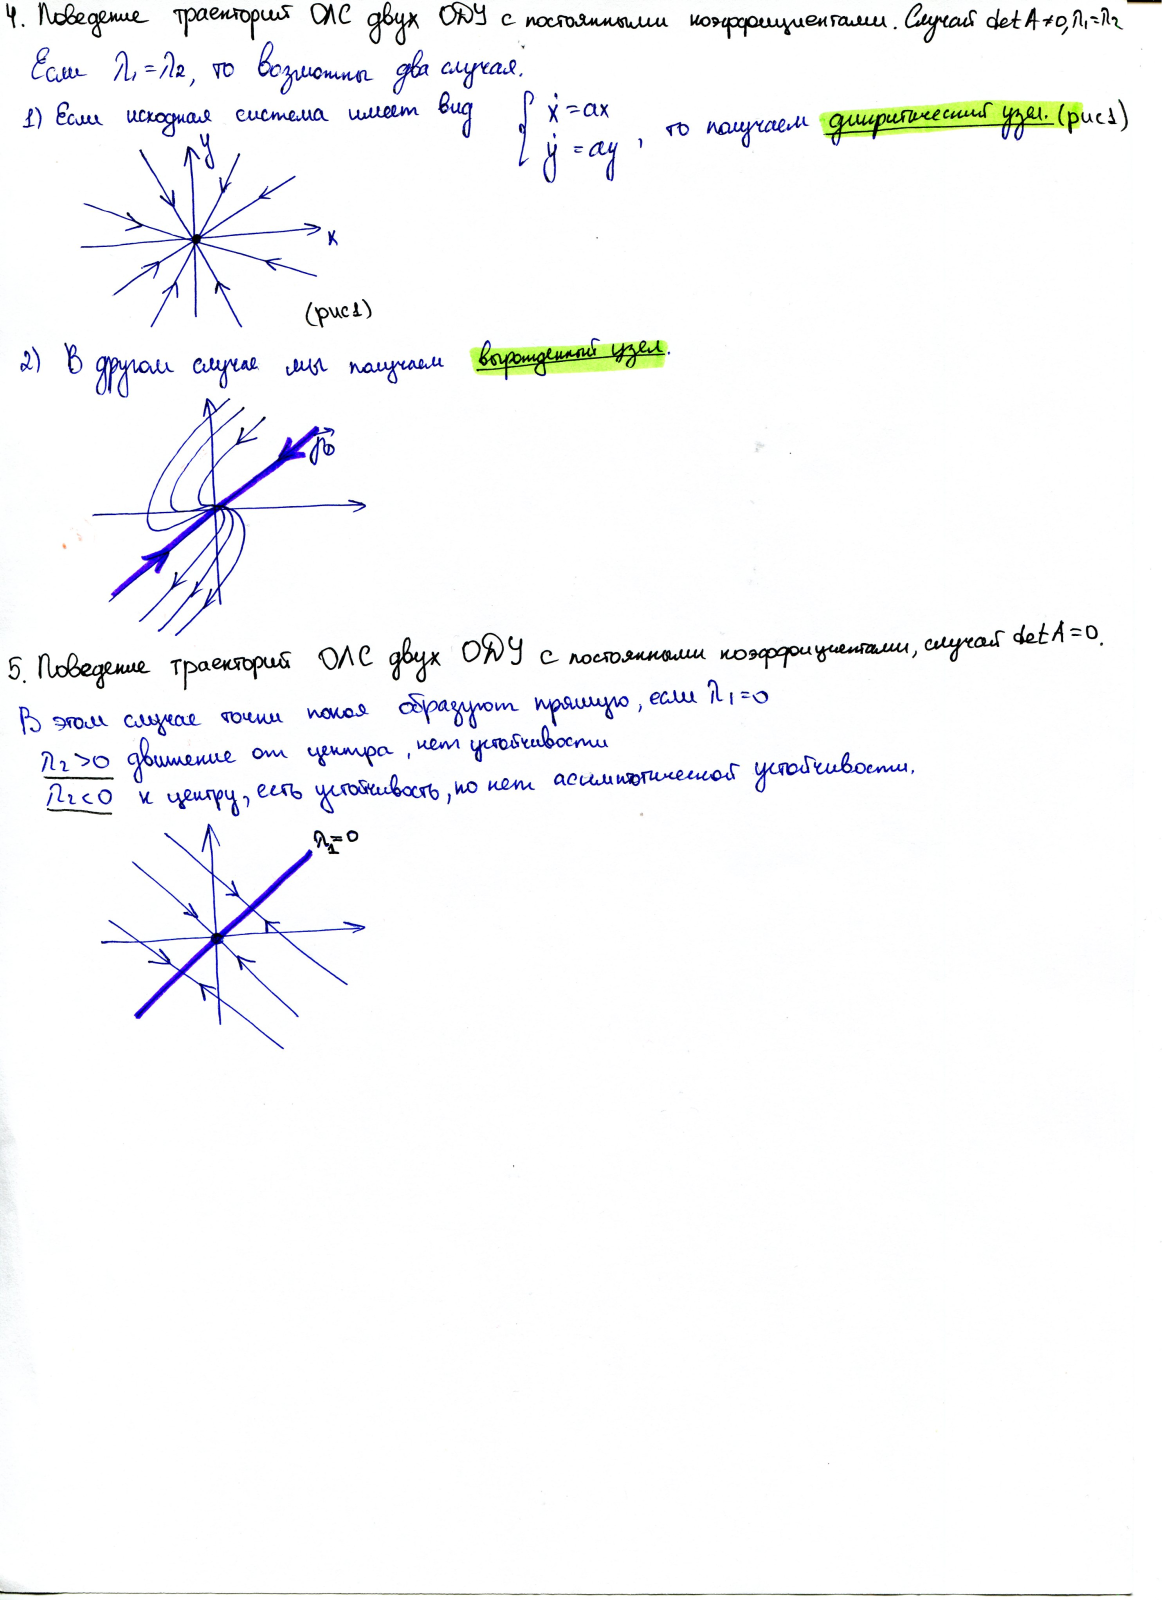 4. Поведение траекторий ОЛС двух ОДУ с постоянными коэффициентами. Случай det A ≠ 0, λ₁=λ₂
Если λ₁=λ₂, то возможны два случая.
1) Если исходная система имеет вид { ẋ = ax
ẏ = ay , то получаем дикритический узел. (рис1)
y
x
(рис1)
2) В другом случае мы получаем вырожденный узел.
5. Поведение траекторий ОЛС двух ОДУ с постоянными коэффициентами, случай det A = 0.
В этом случае точки покоя образуют прямую, если λ₁=0
λ₂>0 движение от центра, нет устойчивости
λ₂<0 к центру, есть устойчивость, но нет асимптотической устойчивости.
λ₁=0